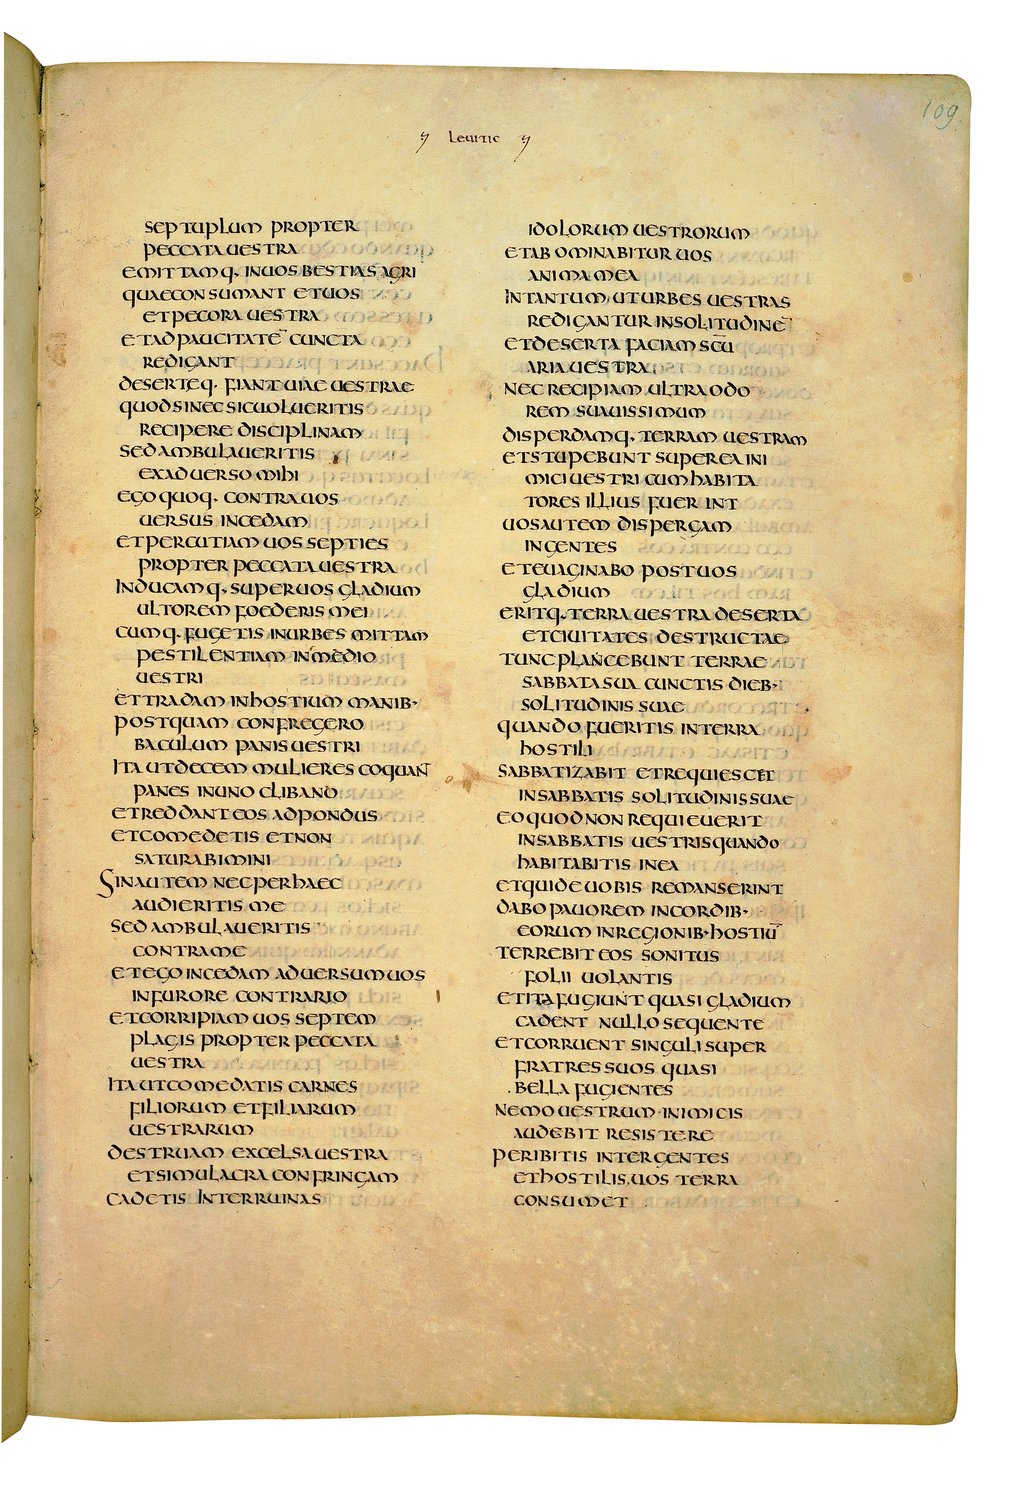 109
Leuitic
septuplum propter
peccata uestra
emittamq· in uos bestias agri
quae consumant et uos
et pecora uestra
et ad paucitatē cuncta
redigant
deserteq· fiant uiae uestrae
quod si nec sic uolueritis
recipere disciplinam
sed ambulaueritis
ex aduerso mihi
ego quoq· contra uos
uersus incedam
et percutiam uos septies
propter peccata uestra
inducamq· super uos gladium
ultorem foederis mei
cumq· fugetis in urbes mittam
pestilentiam in medio
uestri
et tradam in hostium manib·
postquam confregero
baculum panis uestri
ita ut decem mulieres coquan̄
panes in uno clibano
et reddant eos ad pondus
et comedetis et non
saturabimini
Sin autem nec per haec
audieritis me
sed ambulaueritis
contra me
et ego incedam aduersum uos
in furore contrario
et corripiam uos septem
plagis propter peccata
uestra
ita ut comedatis carnes
filiorum et filiarum
uestrarum
destruam excelsa uestra
et simulacra confringam
cadetis inter ruinas
idolorum uestrorum
et abominabitur uos
anima mea
in tantum ut urbes uestras
redigantur in solitudinē
et deserta faciam scū
aria uestra
nec recipiam ultra odo
rem suauissimum
disperdamq· terram uestram
et stupebunt super ea ini
mici uestri cum habita
tores illius fuerint
uos autem dispergam
in gentes
et euaginabo post uos
gladium
eritq· terra uestra deserta
et ciuitates destructae
tunc plancebunt terrae
sabbata sua cunctis dieb·
solitudinis suae
quando fueritis in terra
hostili
sabbatizabit et requiescet
in sabbatis solitudinis suae
eo quod non requieuerit
in sabbatis uestris quando
habitabitis in ea
et qui de uobis remanserint
dabo pauorem in cordib·
eorum in regionib· hostiū
terrebit eos sonitus
folii uolantis
et ita fugiunt quasi gladium
cadent nullo sequente
et corruent singuli super
fratres suos quasi
bella fugientes
nemo uestrum inimicis
audebit resistere
peribitis inter gentes
et hostilis uos terra
consumet